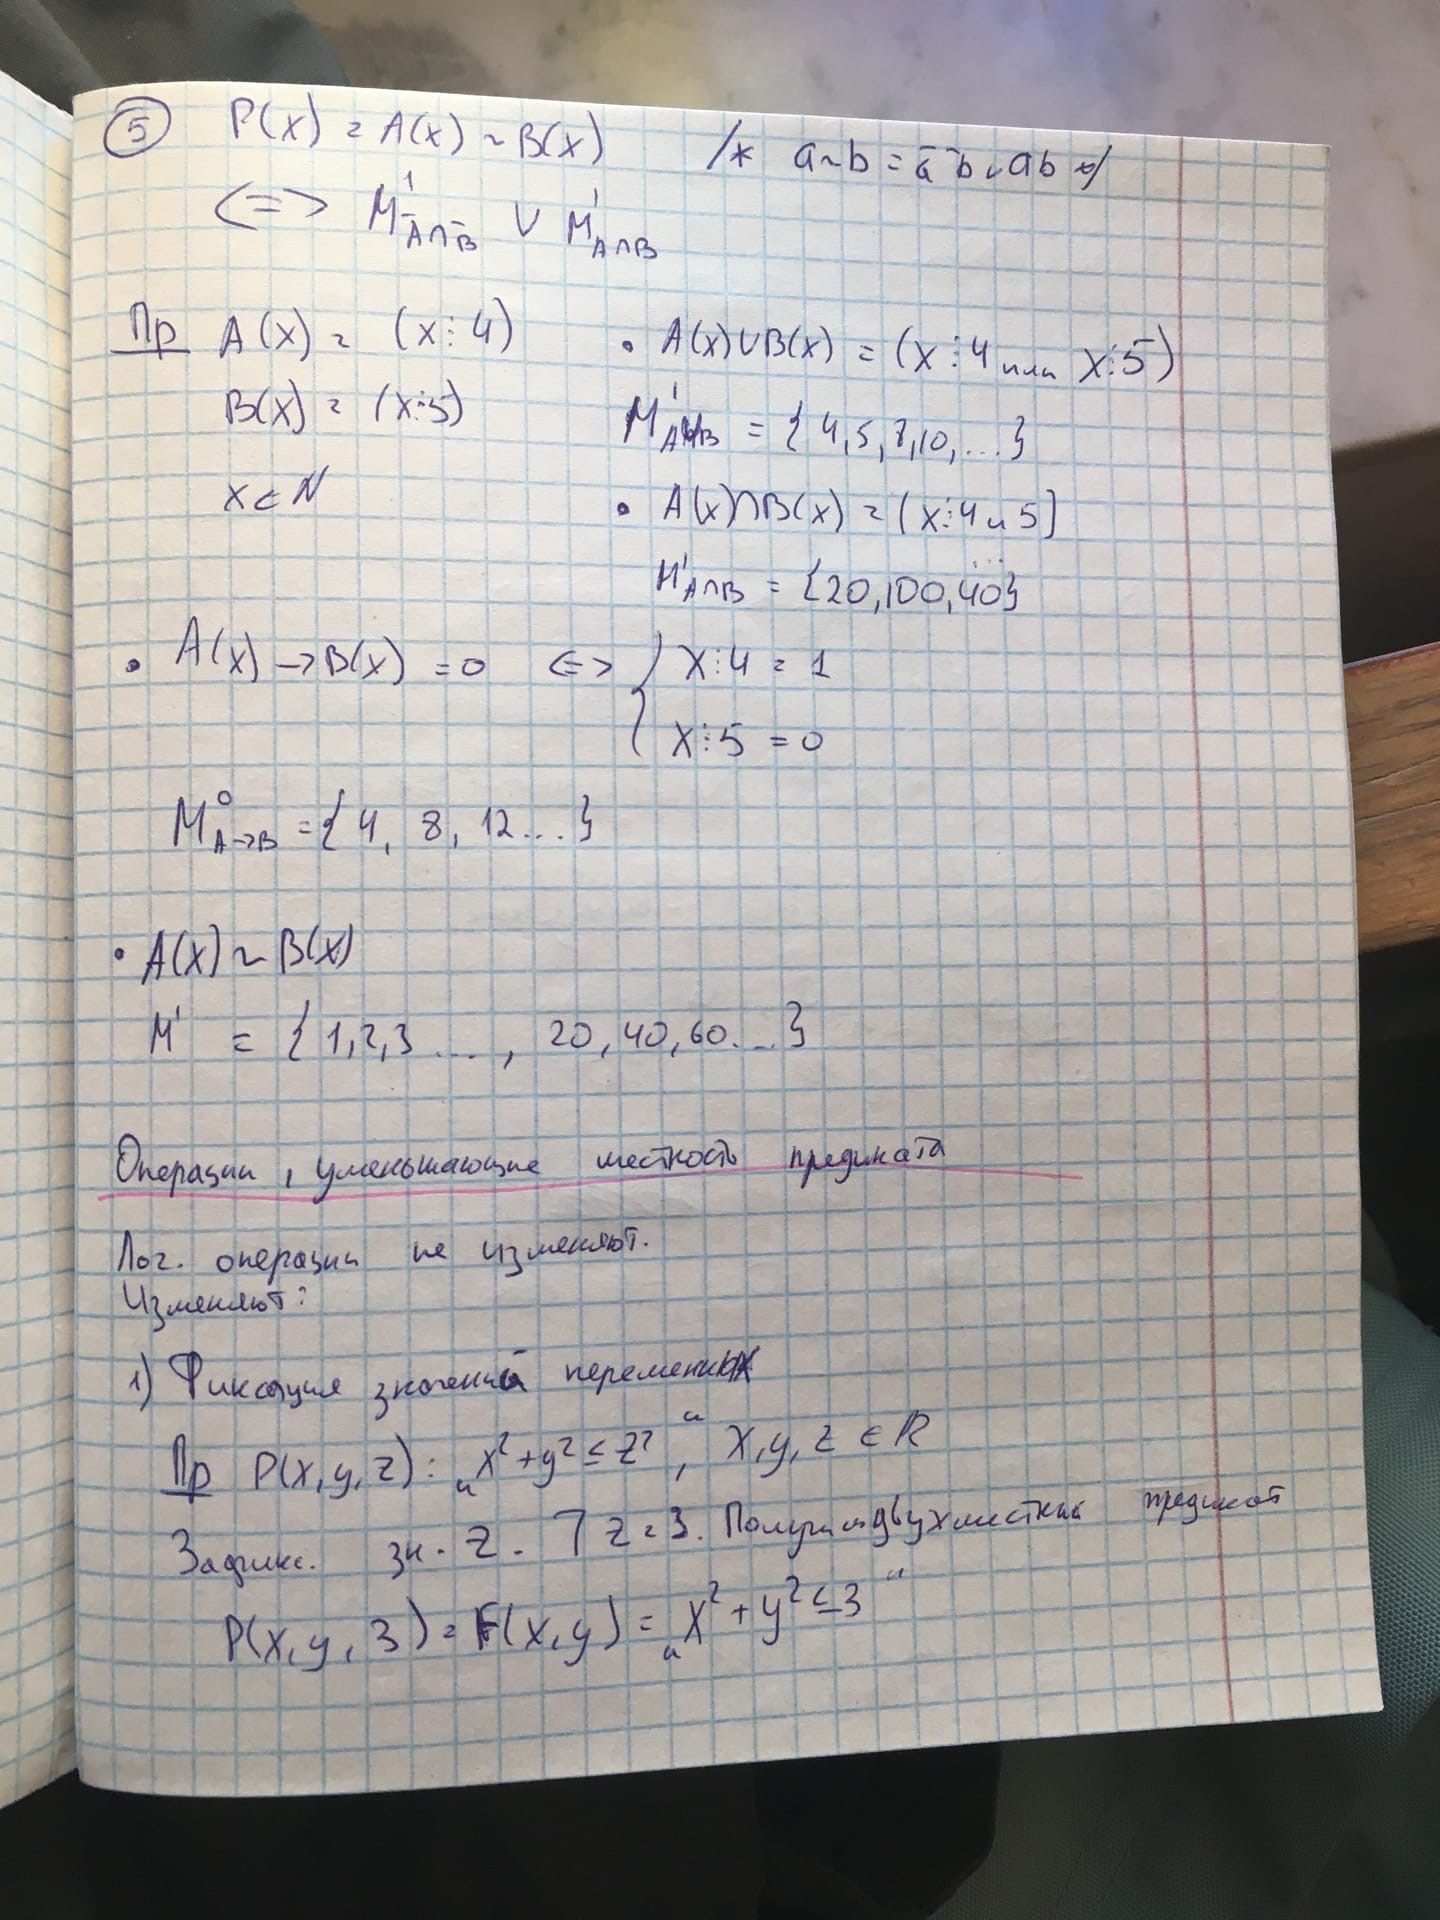 ⑤ P(x) = A(x) ~ B(x) /* a~b = a̅ b̅ ∨ ab */
<=> M¹ A̅∩B̅ ∪ M¹ A∩B
Пр A(x) = (x⋮4) • A(x)∪B(x) = (x⋮4 или x⋮5)
B(x) = (x⋮5) M¹ = {4,5,8,10,...}
x∈N • A(x)∩B(x) = (x⋮4 и 5)
M¹ A∩B = {20,100,40...}
• A(x)→B(x) = 0 <=> { x⋮4 = 1
x⋮5 = 0
M⁰ A→B = {4, 8, 12...}
• A(x) ~ B(x)
M¹ = {1,2,3 ..., 20,40,60...}
Операции, уменьшающие местность предиката
Лог. операции не изменяют.
Изменяют:
1) Фиксация значений переменных
Пр P(x,y,z): „x²+y² ≤ z²“, x,y,z ∈ R
Зафикс. зн. z. ⌉ z=3. Получим двухместный предикат
P(x,y,3) = F(x,y) = „x²+y² ≤ 3“